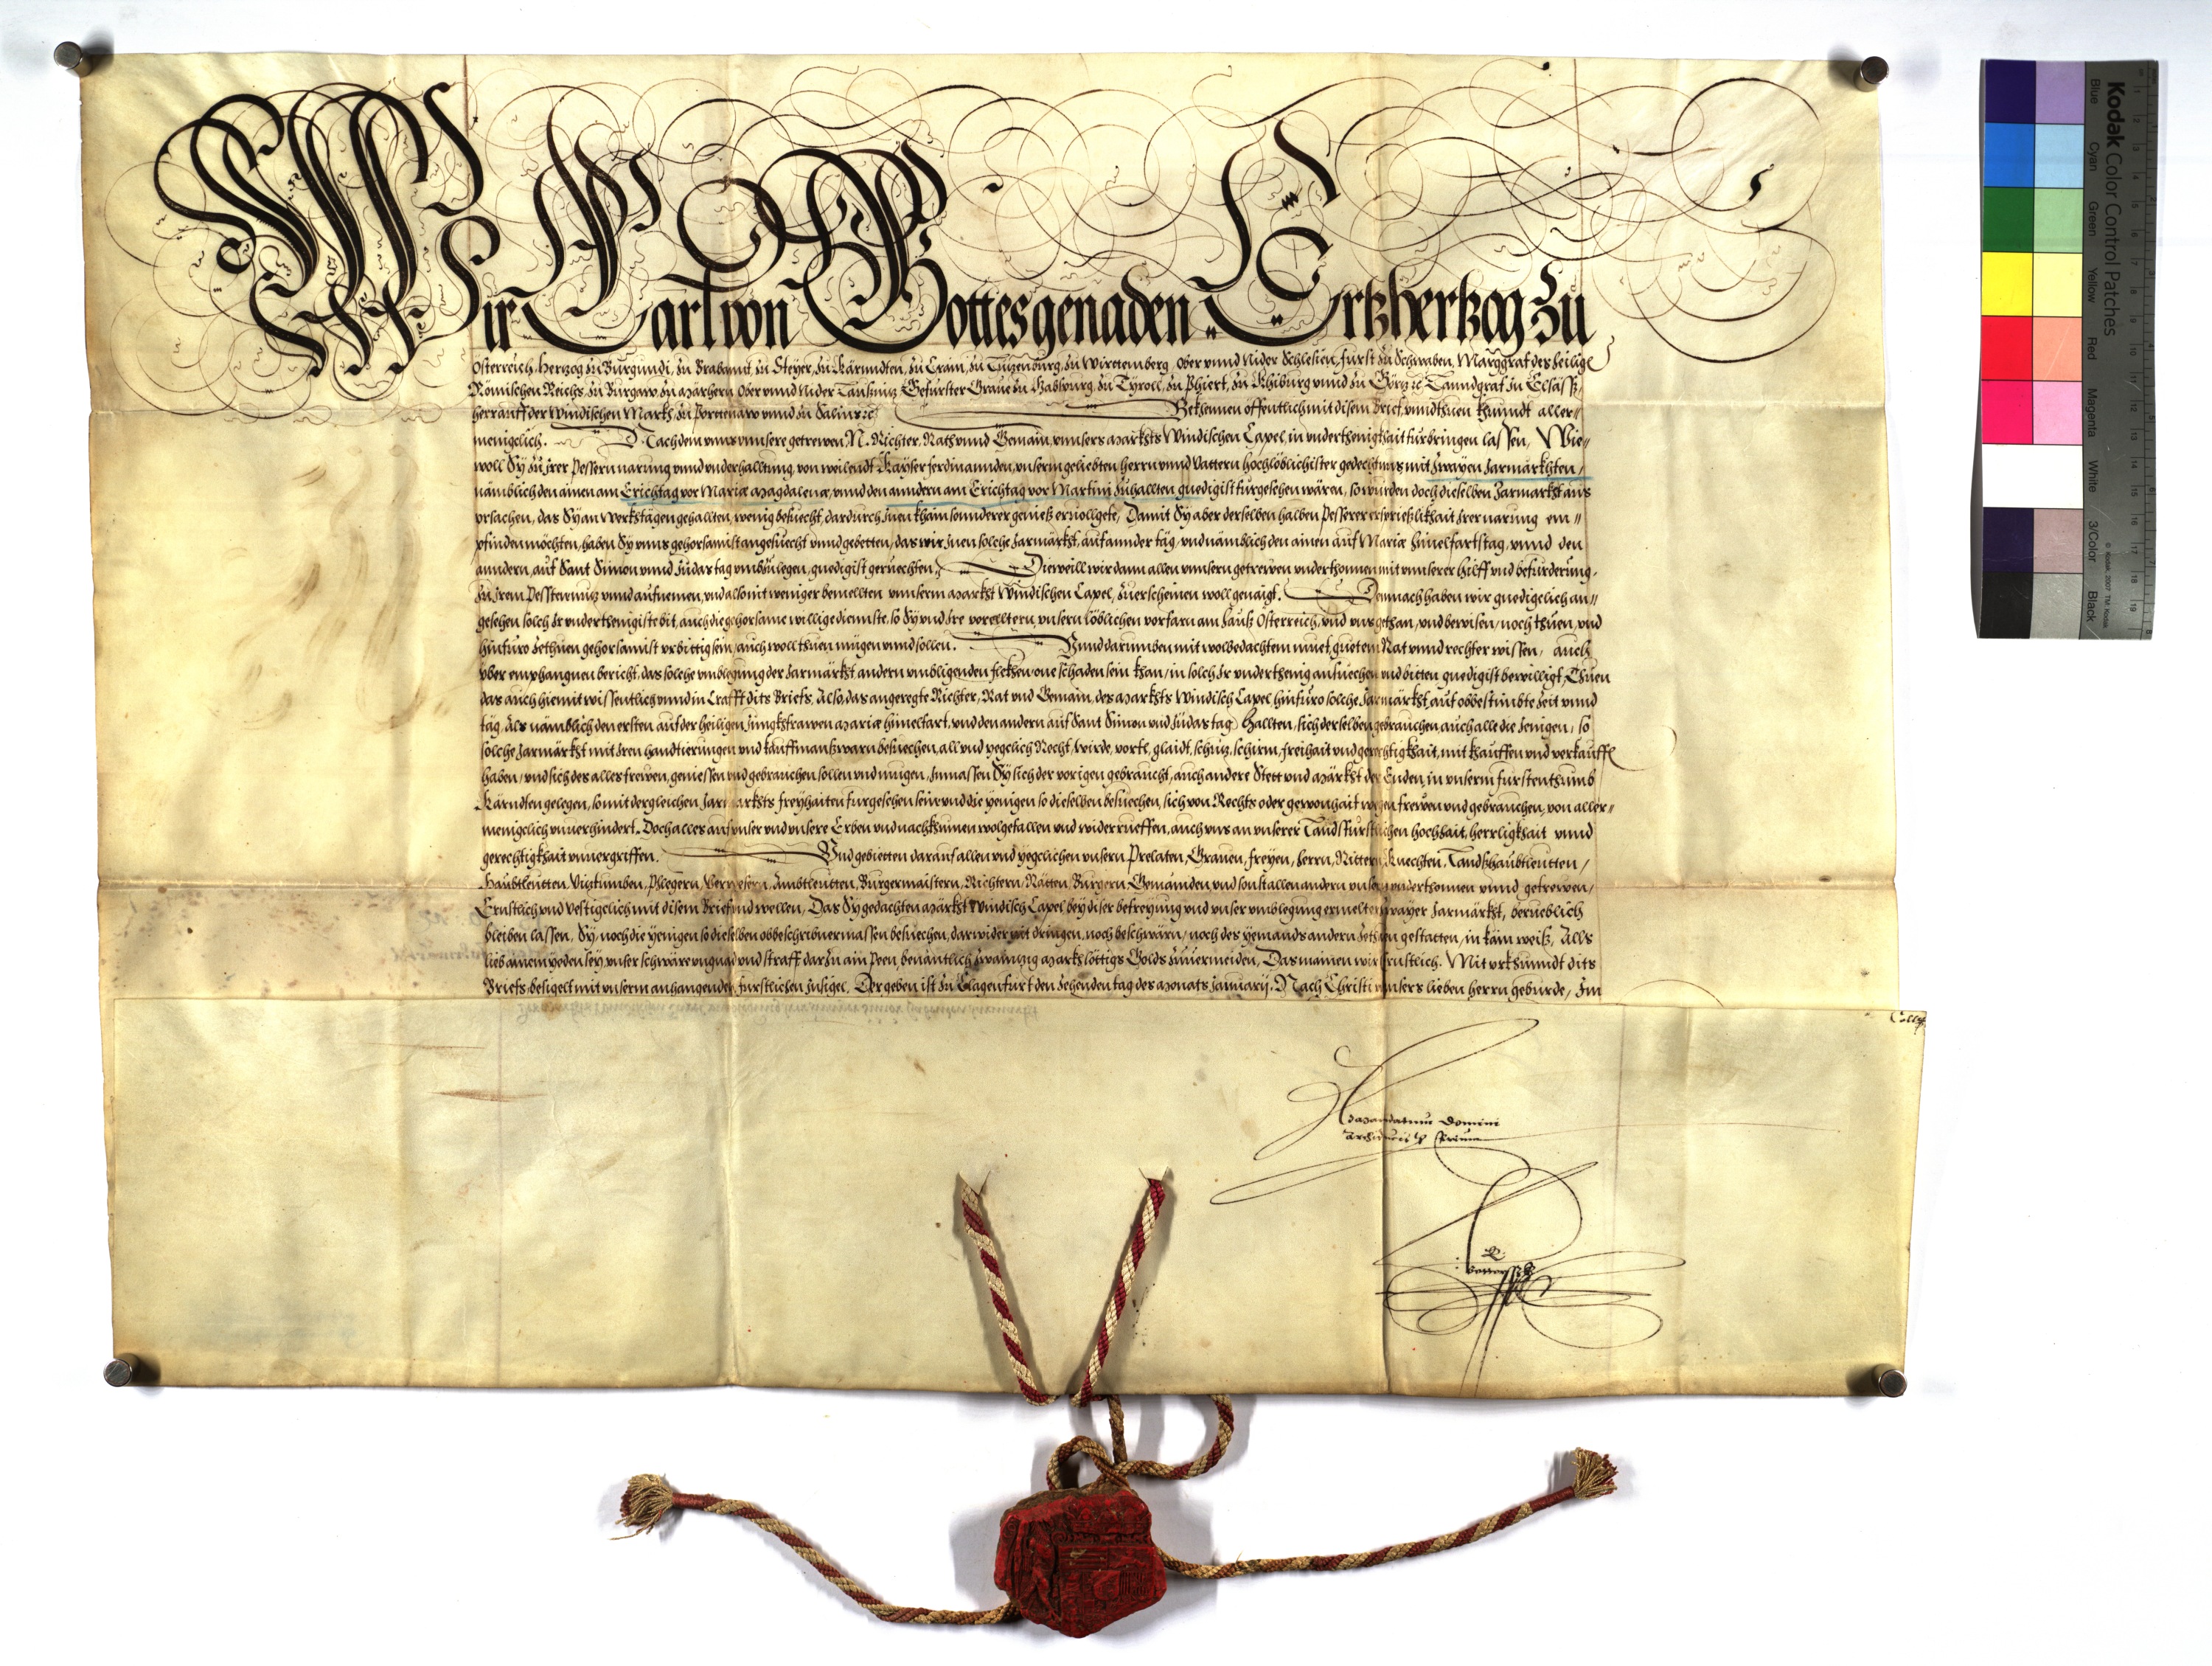 Wir Carl von Gottes genaden Ertzhertzog zu
Osterreich, Hertzog zu Burgundi, zu Brabannt, zu Steyer, zu Kärnndten, zu Crain, zu Lutzenburg, zu Wirttemberg, Ober vnnd Nider Schlesien, Fürst zu Schwaben, Marggraf des Heilige
Römischen Reichs, zu Burgaw zu Märhern Ober vnnd Nider Laußnitz Gefürster Graue zu Habspurg, zu Tyroll, zu Phiert, zu Khiburg vnnd zu Görtz ꝛc Lanndgraf zu Elsass,
herr auff der Windischen Markh, zu Porttenaw vnnd zu Salins ꝛc Bekhennen offentlich mit disem brief, vnnd thuen khundt aller=
menigclich. Nachdem vnns vnnsere getrewen, N. Richter, Rats vnnd Gemain, vnnsers Markhts Windischen Capel, in vnderthenigkhait fürbringen lassen, Wie=
woll Sy zu jrer pessern narung vnnd vnderhalltung, von weilendt Kayser Ferdinannden, vnserm geliebten herrn vnnd Vattern hochlöblichister gedechtnus mit zwayen Jarmärkhten,
nämblich den ainen am Erichtag vor Mariæ Magdalenæ, vnnd den anndern am Erichtag vor Martini zuhallten gnedigist fürgesehen wären, so würden doch dieselben Jarmärkht aus
vrsachen, das Sy an Werkhtägen gehallten, wenig besuecht, dardurch jnen khain sonnderer genieß eruollgete, Damit Sy aber derselben halben pesserer ersprießlikhait jrer narung em=
pfinden möchten, haben Sy vnns gehorsamist angesuecht vnnd gebetten, das wir jnen solche Jarmärkht, auf annder täg, vnd nämblich den ainen auf Mariæ Himelfartstag, vnnd den
anndern, auf Sant Simon vnnd Judas tag vmbzulegen, gnedigist geruechten, Dieweill wir dann allen vnnsern getrewen vnderthonnen mit vnnserer hilff vnd befürderung,
zu jrem pessten nutz vnnd aufnemen, vnd also nit weniger bemellten vnnserm Markht Windischen Capel, zu erscheinen woll genaigt. Demnach haben wir gnedigelich an=
gesehen solch jr vnderthenigiste bit, auch die gehorsame willige diennste, so Sy vnd jre vorelltern, vnsern löblichen vorfarn am Hauß Osterreich, vnd vns gethan, vnd bewisen, noch thuen, vnd
hinfüro zethuen gehorsamist vrbittig sein, auch woll thuen mügen vnnd sollen. Vnnd darumben mit wolbedachtem muet, guetem Rat vnnd rechter wissen, auch
vber emphangnen bericht, das solche vmblegung der Jarmärkht, andern vmbligenden flekhen, one schaden sein khan, in solch jr vnderthenig ansuechen vnd bitten gnedigist bewilligt, Thuen
das auch hiemit wissentlich vnnd in Crafft dits Briefs, Also, das angeregte Richter, Rat vnd Gemain, des Markhts Windisch Capel hinfüro solche Jarmärkht, auf obbestimbte zeit vnnd
täg, Als nämblich den ersten auf der heiligen Jungkhfrawen Mariæ himelfart, vnd den andern auf Sant Simon vnd Judas tag, Hallten, sich derselben gebrauchen, auch alle die Jenigen, so
solche Jarmärkht mit jren handtierungen vnd kauffmanßwarn besuechen, all vnd yegclich Recht, wirde, vortl, glaidt, schutz, schirm, freihait vnd gerechtigkhait, mit khauffen vnd verkauffe
haben, vnd sich des alles frewen, geniessen vnd gebrauchen sollen vnd mugen, Inmassen Sy sich der vorigen gebraucht, auch andere Stett vnd Märkht der Enden, in vnserm Fürstenthumb
Kärndten gelegen, so mit dergleichen Jarmarkhts freyhaiten fürgesehen sein vnd die yenigen so dieselben besuechen, sich von Rechts oder gewonhait wegen frewen vnd gebrauchen, von aller=
menigclich vnuerhindert. Doch alles auf vnser vnd vnsere Erben vnd nachkhumen wolgefallen vnd widerrueffen, auch vns an vnserer Landsfürstlichen hochhait, herrligkhait vnnd
gerechtigkhait vnuergriffen. Vnd gebietten darauf allen vnd yegclichen vnsern Prelaten, Grauen, Freyen, herrn, Rittern, Knechten, Landßhaubtleutten,
Haubtleutten, Vitztumben, Phlegern, Verwesern, Ambtleutten, Burgermaistern, Richtern, Rätten, Burgern, Gemainden, vnd sonst allen andern vnsern vnderthonnen vnnd getrewen,
Ernstlich vnd vestigclich mit disem Brief vnd wellen, Das Sy gedachten Märkht Windisch Capel bey diser befreyung vnd vnser vmblegung ermelter zwayer Jarmärkht, berueblich
bleiben lassen, Sy, noch die yenigen so dieselben obbeschribnermassen besuechen, darwider nit dringen, noch beschwärn, noch des yemands andern zethuen gestatten, in kain weiß, Alls
lieb ainem yeden sey, vnser schwäre vngnad vnd straff, darzu ain Peen, benantlich zwaintzig Markh löttigs Golds zuuermeiden, Das mainen wir ernstlich. Mit vrkhunndt dits
Briefs, besigelt mit vnserm anhangenden Fürstlichen Insigel, Der geben ist zu Clagenfurt den zehenden tag des Monats January, Nach Christi vnsers lieben herrn gebürde, Im
Ad Mandatum Domini
Archiducis